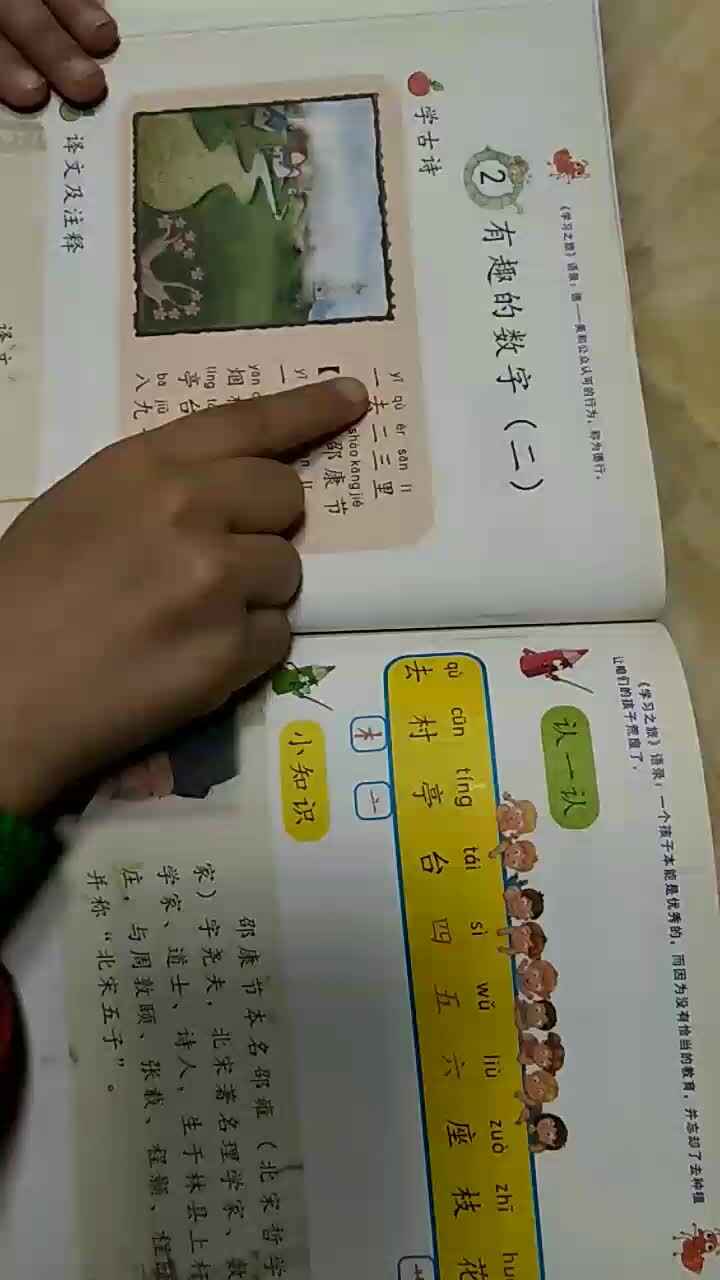 《学习之旅》语录：德——美和公众认可的行为，称为德行。
2
有趣的数字（二）
学古诗
yī qù èr sān lǐ
一去二三里
【
shào kāng jié
邵康节
yī
一
yān
烟
tíng
亭台
bā jiǔ
八九
译文及注释
译文
《学习之旅》语录：一个孩子本能是优秀的，而因为没有恰当的教育，并忘却了去种植
让咱们的孩子荒废了。
认一认
qù cūn tíng tái sì wǔ liù zuò zhī
去村亭台四五六座枝花
木 亠
小知识
邵康节本名邵雍（北宋哲学
家）字尧夫，北宋著名理学家、数
学家、道士、诗人，生于林县上杆
庄，与周敦颐、张载、程颢、程
并称“北宋五子”。